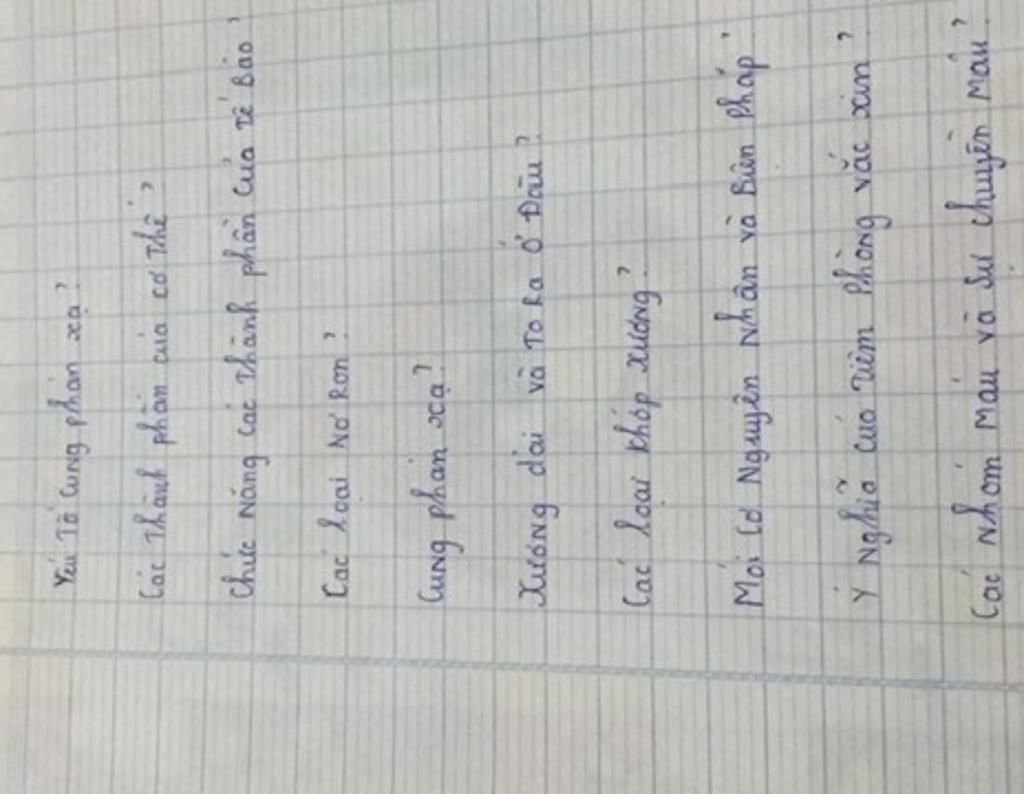 Yếu Tố Cung phản xạ?
Các Thành phần của cơ Thể?
Chức Năng Các Thành phần Của Tế Bào?
Các loại Nơ Ron?
Cung phản xạ?
Xương dài và To Ra Ở Đâu?
Các loại Khớp xương?
Mỏi Cơ Nguyên Nhân và Biên Pháp?
Ý Nghĩa Của Tiêm Phòng vắc xin?
Các Nhóm Máu và Sự chuyền Máu?